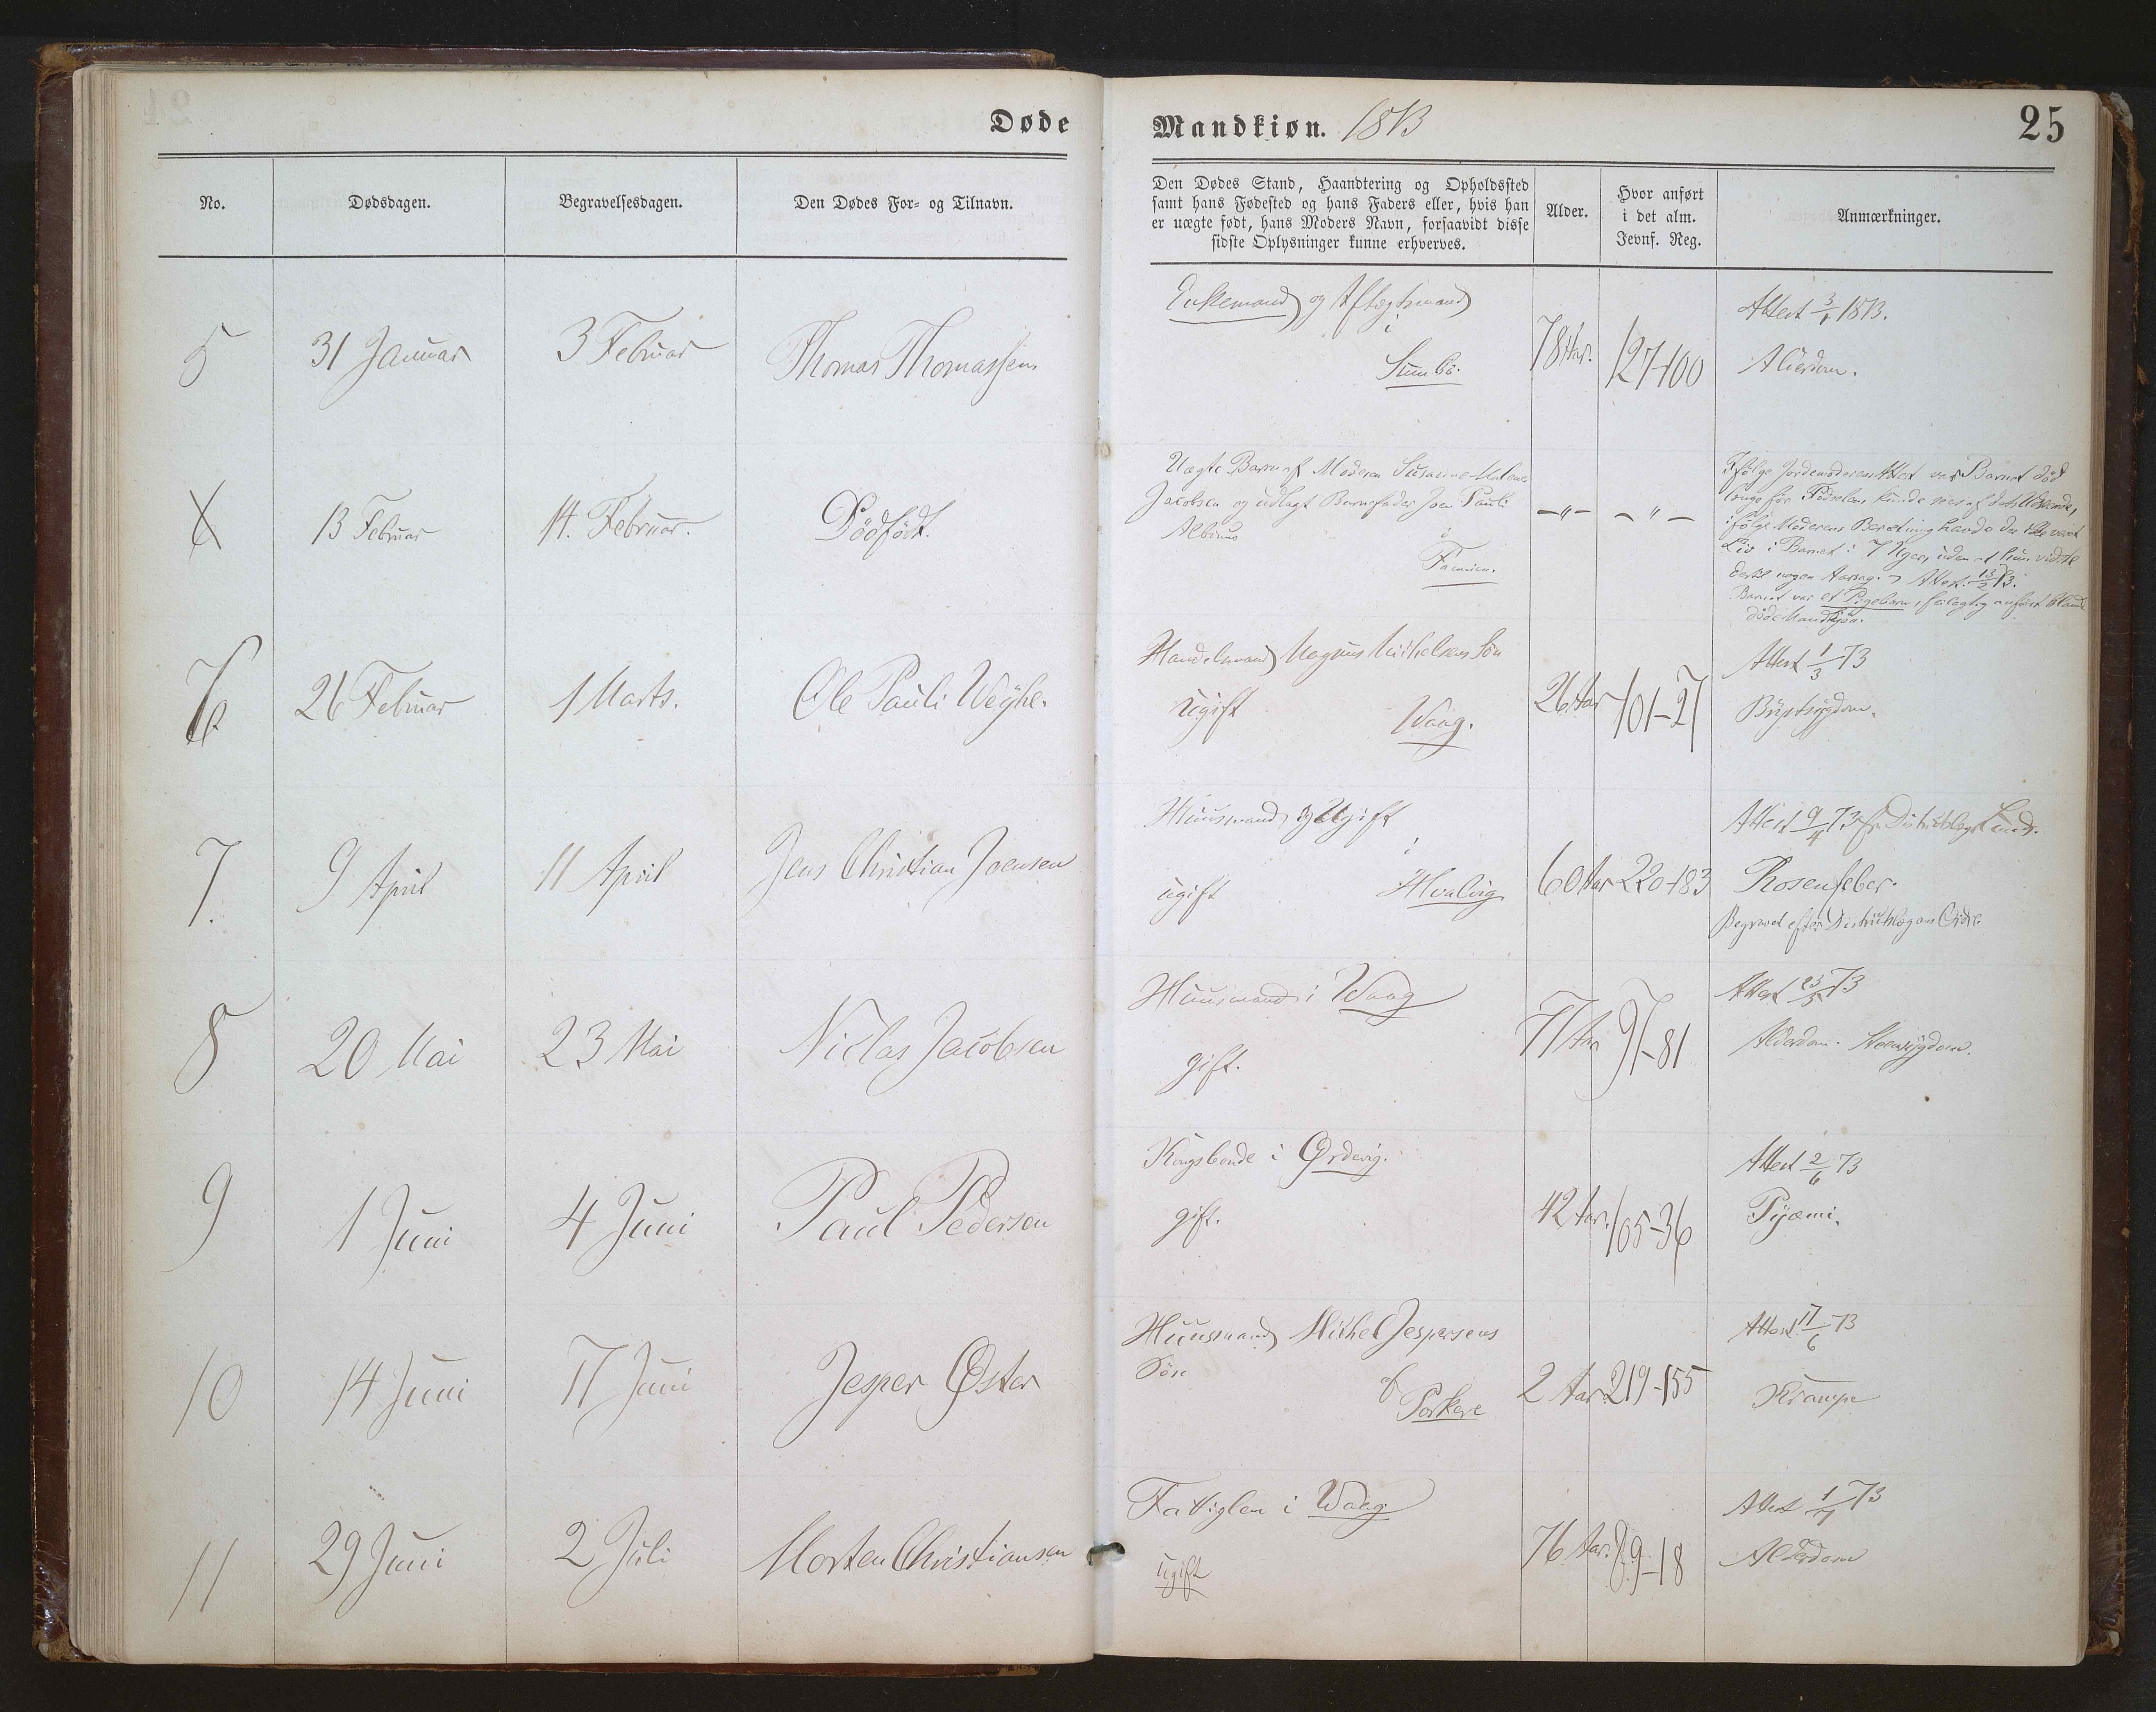 Døde
Mandkiøn. 1873
25
No.
Dødsdagen.
Begravelsesdagen.
Den Dødes For- og Tilnavn.
Den Dødes Stand, Haandtering og Opholdssted
samt hans Fødested og hans Faders eller, hvis han
er uægte født, hans Moders Navn, forsaavidt disse
sidste Oplysninger kunne erhverves.
Alder.
Hvor anført
i det alm.
Jevnf. Reg.
Anmærkninger.
5
31 Januar
3 Februar
Thomas Thomassen
Enkemand og Aftægtsmand
i
Sumbö.
78 Aar.
127-100
Attest 3/1 1873.
Alderdom.
13 Februar
14. Februar.
Dödfödt.
Uægte Barn af Moderen Susanne Malene
Jacobsen og udlagt Barnefader Joen Pauli
Albinus
i
Famien.
-"-
-"-
Ifölge Jordemoderens Attest var Barnet död
længe för Födselen, kunde sees af dets Udseende,
ifölge Moderens Beretning havde der ikke været
Liv i Barnet i 7 Uger, uden at hun vidste
dertil nogen Aarsag. Attest. 13/2 73.
Barnet var et Pigebarn, feilagtig anført blandt
döde Mandkjön.
6
26 Februar
1 Marts.
Ole Pauli Weyhe.
Handelsmand Magnus Michelsens Sön
ugift
Waag.
26 Aar
101-27
Attest 1/3 73
Brystsygdom.
7.
9 April
11 April
Jens Christian Joensen
Huusmand, ugift
i
ugift
Hvalvig
60 Aar
220-183
Attest 9/4 73 fra Districtslæge
Rosenfeber.
Begravet efter Districtslægens Ordre.
8
20 Mai
23 Mai
Niclas Jacobsen
Huusmand i Waag
gift.
77 Aar
97-81
Attest 23/5 73
Alderdom. Steensygdom.
9
1 Juni
4 Juni
Paul Pedersen
Kongsbonde i Ørdevig.
gift.
42 Aar.
105-36
Attest 2/6 73
Pyæmi.
10
14 Juni
17 Juni
Jesper Øster
Huusmand Michel Jespersens
Sön
af
Porkere
2 Aar
219-155
Attest 17/6 73
Krampe
11
29 Juni
2 Juli
Morten Christiansen
Fattiglem i Waag
ugift
76 Aar.
89-18
Attest 1/7 73
Alderdom